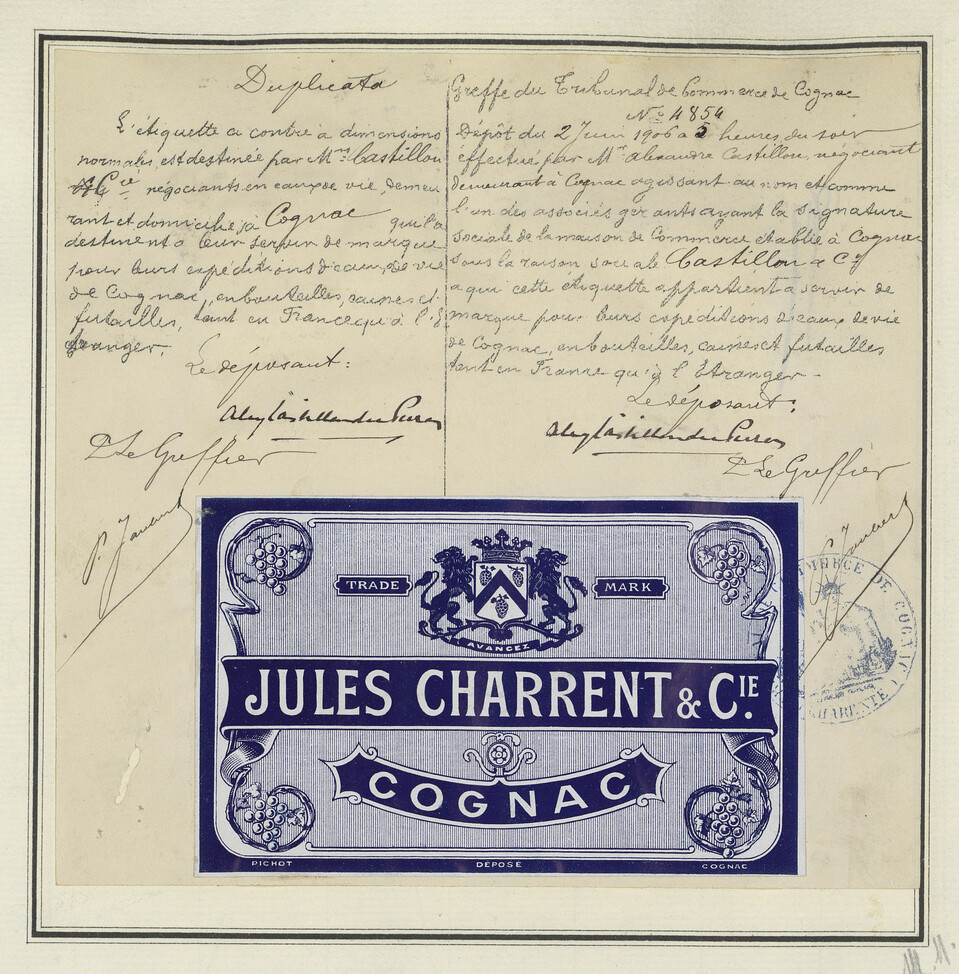 Duplicata
L'étiquette ci contre à dimensions
normales, est destinée par Mrs Castillon
& Cie négociants en eaux de vie, demeu
rant et domiciliés à Cognac qui la
destinent à leur servir de marque
pour leurs expéditions d'eaux de vie
de Cognac, en bouteilles, caisses et
futailles, tant en France qu'à l'É
tranger.
Le déposant:
Le Greffier
P. Jaubert
Greffe du Tribunal de Commerce de Cognac
No 4854
Dépôt du 2 Juin 1906 à 5 heures du soir
effectué par Mr Alexandre Castillon, négociant
demeurant à Cognac agissant au nom et comme
l'un des associés gérants ayant la signature
sociale de la maison de Commerce établie à Cognac
sous la raison sociale Castillon & Cie
à qui cette étiquette appartient à servir de
marque pour leurs expéditions d'eaux de vie
de Cognac, en bouteilles, caisses et futailles
tant en France qu'à l'Étranger.
Le déposant:
Le Greffier
Jaubert
TRADE MARK
AVANCEZ
JULES CHARRENT & CIE.
COGNAC
PICHOT DÉPOSÉ COGNAC
COMMERCE DE COGNAC
CHARENTE